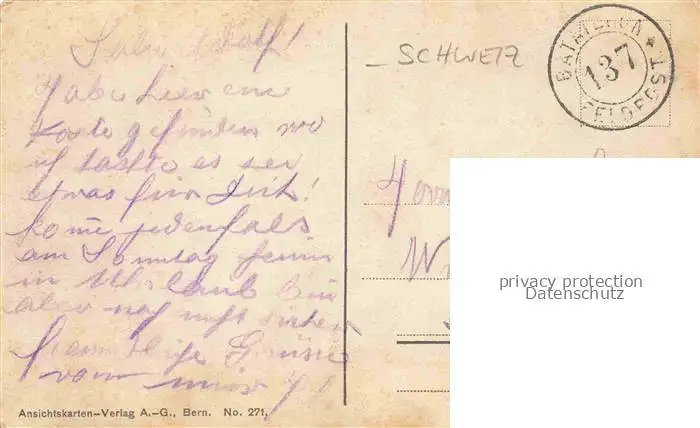 Salu Adolf!
Habe hier eine
Karte gefunden wo
ich dachte es sei
etwas für Dich!
Komme jedenfals
am Sonntag
in Uhrlaub Bin
aber noch nicht sicher
Grüsse
von mir
SCHWEIZ
BATAILLON ★
137
FELDPOST
Herrn
privacy protection
Datenschutz
Ansichtskarten-Verlag A.-G., Bern. No. 271.